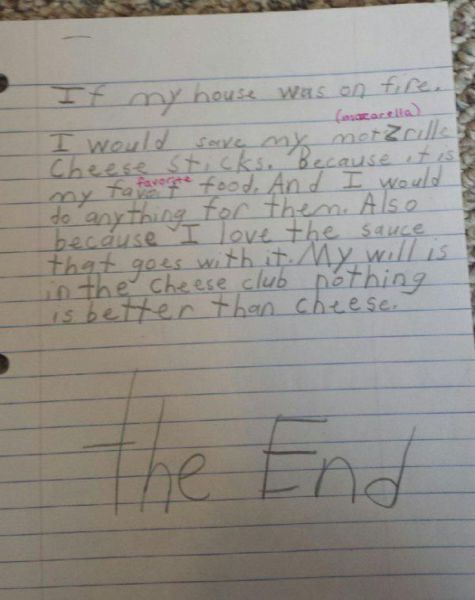 If my house was on fire.
(mozarella)
I would save my motzrille
cheese sticks. Because it is
favorite
my favet food. And I would
do anything for them. Also
because I love the sauce
that goes with it. My will is
in the cheese club nothing
is better than cheese.
The End